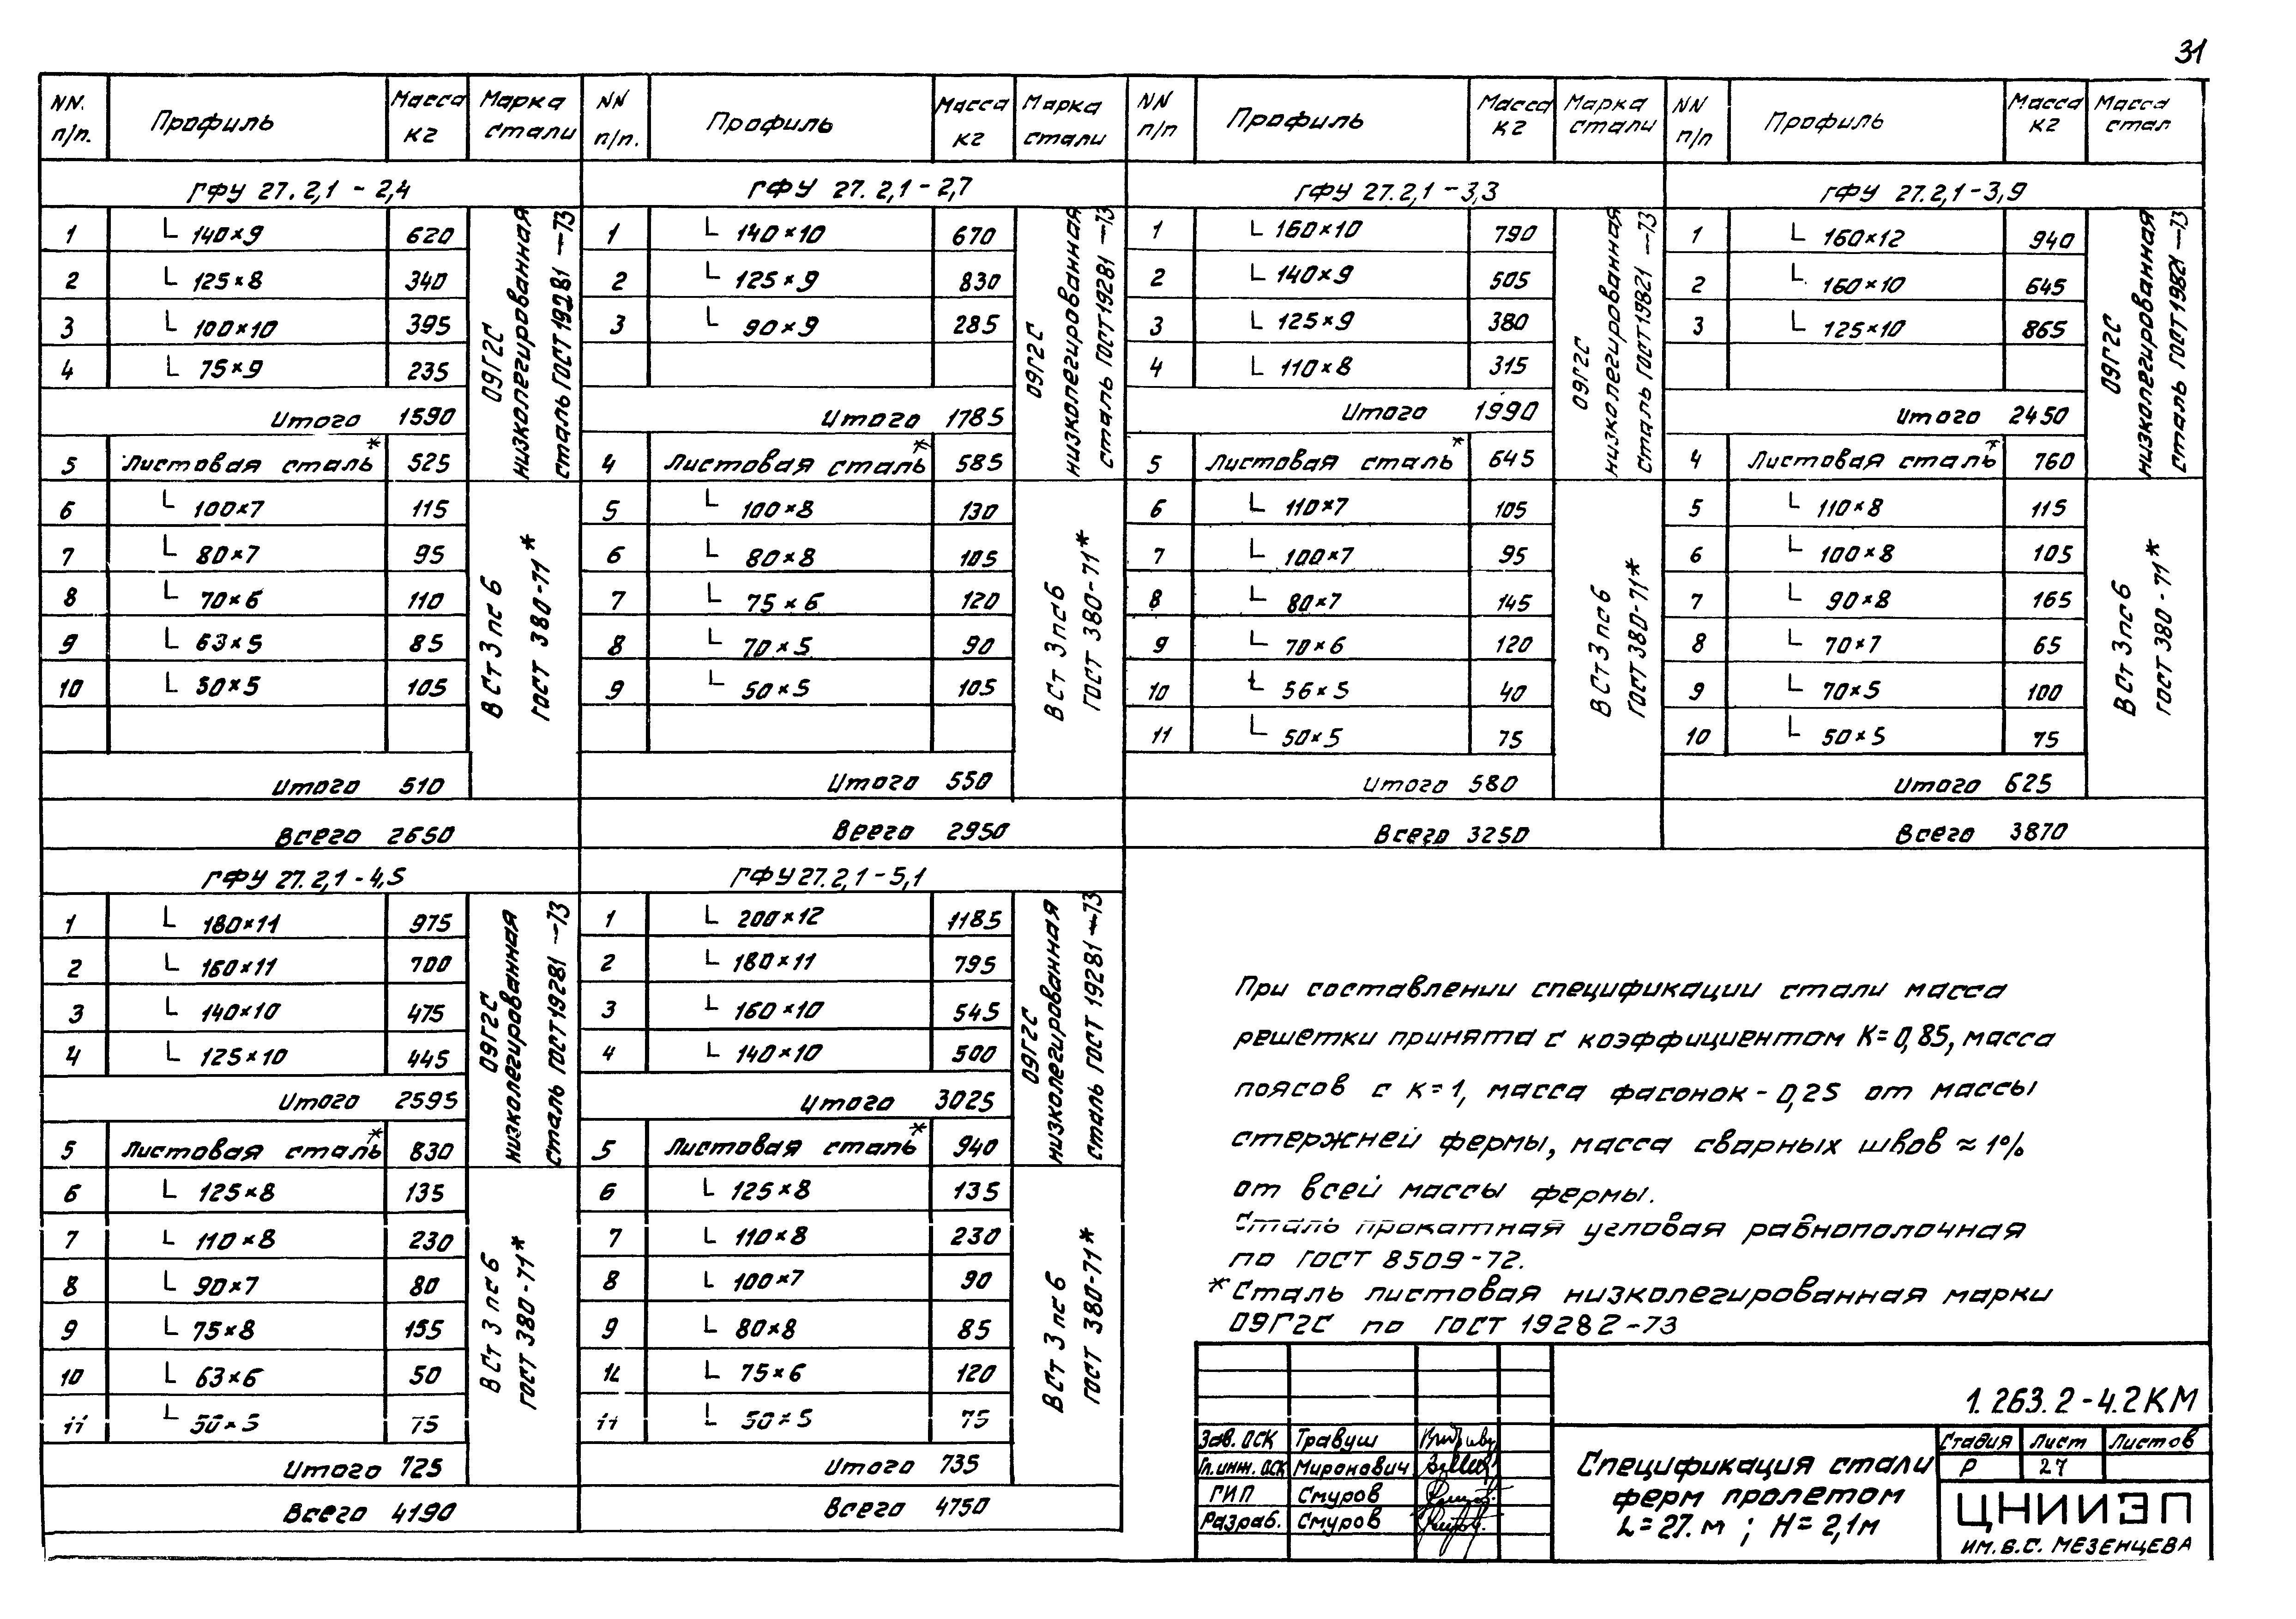 31
NN. п/п. Профиль Масса кг Марка стали NN п/п. Профиль Масса кг Марка стали NN п/п Профиль Масса кг Марка стали NN п/п Профиль Масса кг Масса стал
ГФУ 27. 2,1 - 2,4
1 L 140×9 620
2 L 125×8 340
3 L 100×10 395
4 L 75×9 235
Итого 1590
5 Листовая сталь* 525
09Г2С
низколегированная
сталь ГОСТ 19281-73
6 L 100×7 115
7 L 80×7 95
8 L 70×6 110
9 L 63×5 85
10 L 50×5 105
В Ст 3 пс 6
ГОСТ 380-71*
Итого 510
Всего 2650
ГФУ 27. 2,1 - 2,7
1 L 140×10 670
2 L 125×9 830
3 L 90×9 285
Итого 1785
4 Листовая сталь* 585
09Г2С
низколегированная
сталь ГОСТ 19281-73
5 L 100×8 130
6 L 80×8 105
7 L 75×6 120
8 L 70×5 90
9 L 50×5 105
В Ст 3 пс 6
ГОСТ 380-71*
Итого 550
Всего 2950
ГФУ 27. 2,1 - 3,3
1 L 160×10 790
2 L 140×9 505
3 L 125×9 380
4 L 110×8 315
Итого 1990
5 Листовая сталь* 645
09Г2С
низколегированная
сталь ГОСТ 19821-73
6 L 110×7 105
7 L 100×7 95
8 L 80×7 145
9 L 70×6 120
10 L 56×5 40
11 L 50×5 75
В Ст 3 пс 6
ГОСТ 380-71*
Итого 580
Всего 3250
ГФУ 27. 2,1 - 3,9
1 L 160×12 940
2 L 160×10 645
3 L 125×10 865
Итого 2450
4 Листовая сталь* 760
09Г2С
низколегированная
сталь ГОСТ 19821-73
5 L 110×8 115
6 L 100×8 105
7 L 90×8 165
8 L 70×7 65
9 L 70×5 100
10 L 50×5 75
В Ст 3 пс 6
ГОСТ 380-71*
Итого 625
Всего 3870
ГФУ 27. 2,1 - 4,5
1 L 180×11 975
2 L 160×11 700
3 L 140×10 475
4 L 125×10 445
Итого 2595
5 Листовая сталь* 830
09Г2С
низколегированная
сталь ГОСТ 19281-73
6 L 125×8 135
7 L 110×8 230
8 L 90×7 80
9 L 75×8 155
10 L 63×6 50
11 L 50×5 75
В Ст 3 пс 6
ГОСТ 380-71*
Итого 725
Всего 4190
ГФУ 27. 2,1 - 5,1
1 L 200×12 1185
2 L 180×11 795
3 L 160×10 545
4 L 140×10 500
Итого 3025
5 Листовая сталь* 940
09Г2С
низколегированная
сталь ГОСТ 19281-73
6 L 125×8 135
7 L 110×8 230
8 L 100×7 90
9 L 80×8 85
L 75×6 120
11 L 50×5 75
В Ст 3 пс 6
ГОСТ 380-71*
Итого 735
Всего 4750
При составлении спецификации стали масса
решетки принята с коэффициентом К=0,85, масса
поясов с К=1, масса фасонок - 0,25 от массы
стержней фермы, масса сварных швов ≈ 1%
от всей массы фермы.
Сталь прокатная угловая равнополочная
по ГОСТ 8509-72.
* Сталь листовая низколегированная марки
09Г2С по ГОСТ 19282-73
1.263.2-4.2КМ
Зав. ОСК Травуш
Гл. инж. ОСК Миронович
ГИП Смуров
Разраб. Смуров
Спецификация стали
ферм пролетом
L=27. м ; Н=2,1м
Стадия Лист Листов
Р 27
ЦНИИЭП
ИМ. Б.С. МЕЗЕНЦЕВА